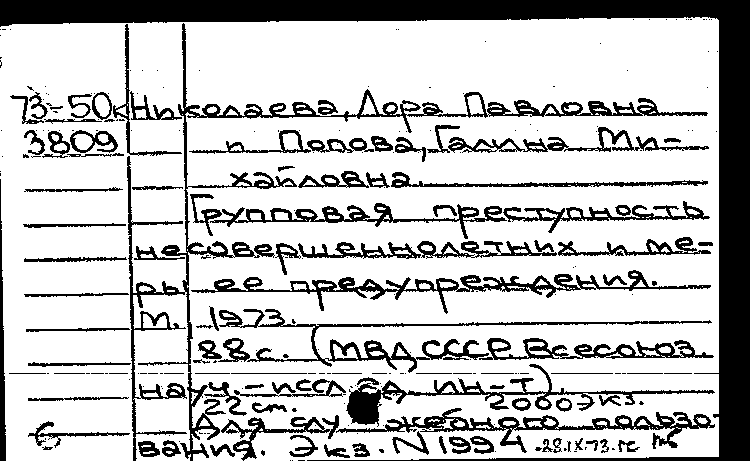 73-50к Николаева, Лора Павловна
3809 и Попова, Галина Ми-
хайловна.
Групповая преступность
несовершеннолетних и ме-
ры ее предупреждения.
М., 1973.
88 с. (МВД СССР. Всесоюз.
науч.-иссл ин-т).
22 см. 2000 экз.
Для служебного пользо-
6 вания. Экз. N 1994 .-28.IX-73.